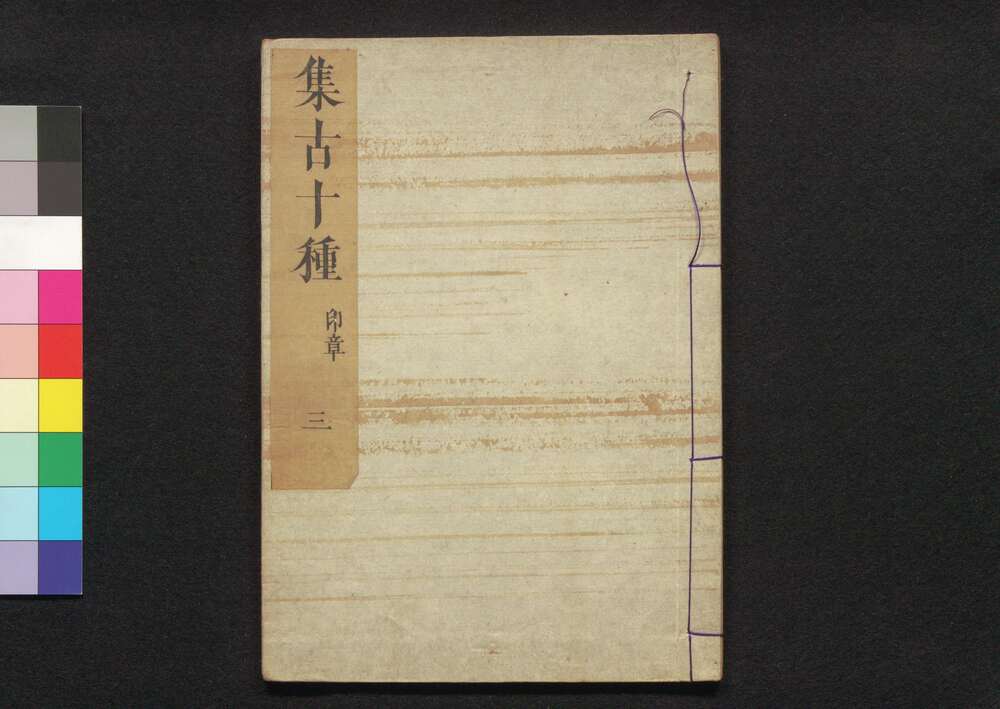 集古十種
印章
三